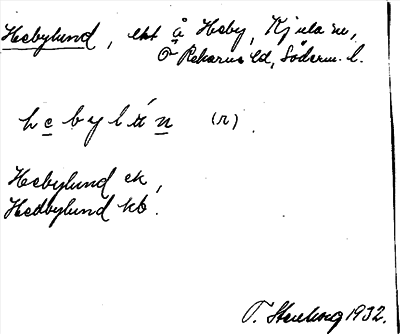 Hebylund, lht å Heby, Kjula sn,
Ö Rekarne hd, Söderm. l.
hebylún (n).
Hebylund ek,
Hedbylund kb.
1932.